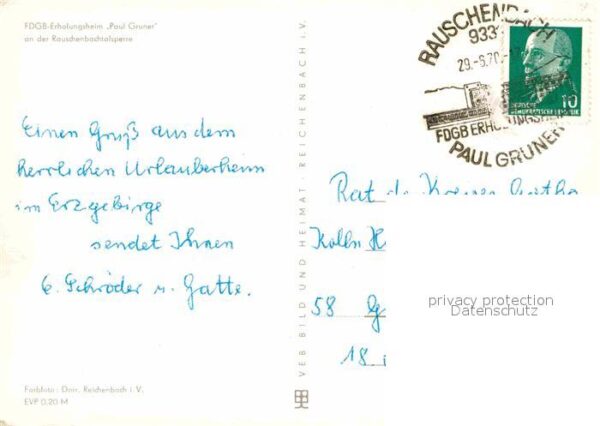 FDGB-Erholungsheim „Paul Gruner"
an der Rauschenbachtalsperre
Einen Gruß aus dem
herrlichen Urlauberheim
im Erzgebirge
sendet Ihnen
E. Schröder u. Gatte.
Farbfoto: Doir, Reichenbach i. V.
EVP 0.20 M
VEB BILD UND HEIMAT · REICHENBACH i. V.
RAUSCHENBACH
933
29.-6.70.-
FDGB ERHOLUNGSHEIM
PAUL GRUNER
10
Rat d. Kreises Gotha
Kolln H
58 G
18
privacy protection
Datenschutz